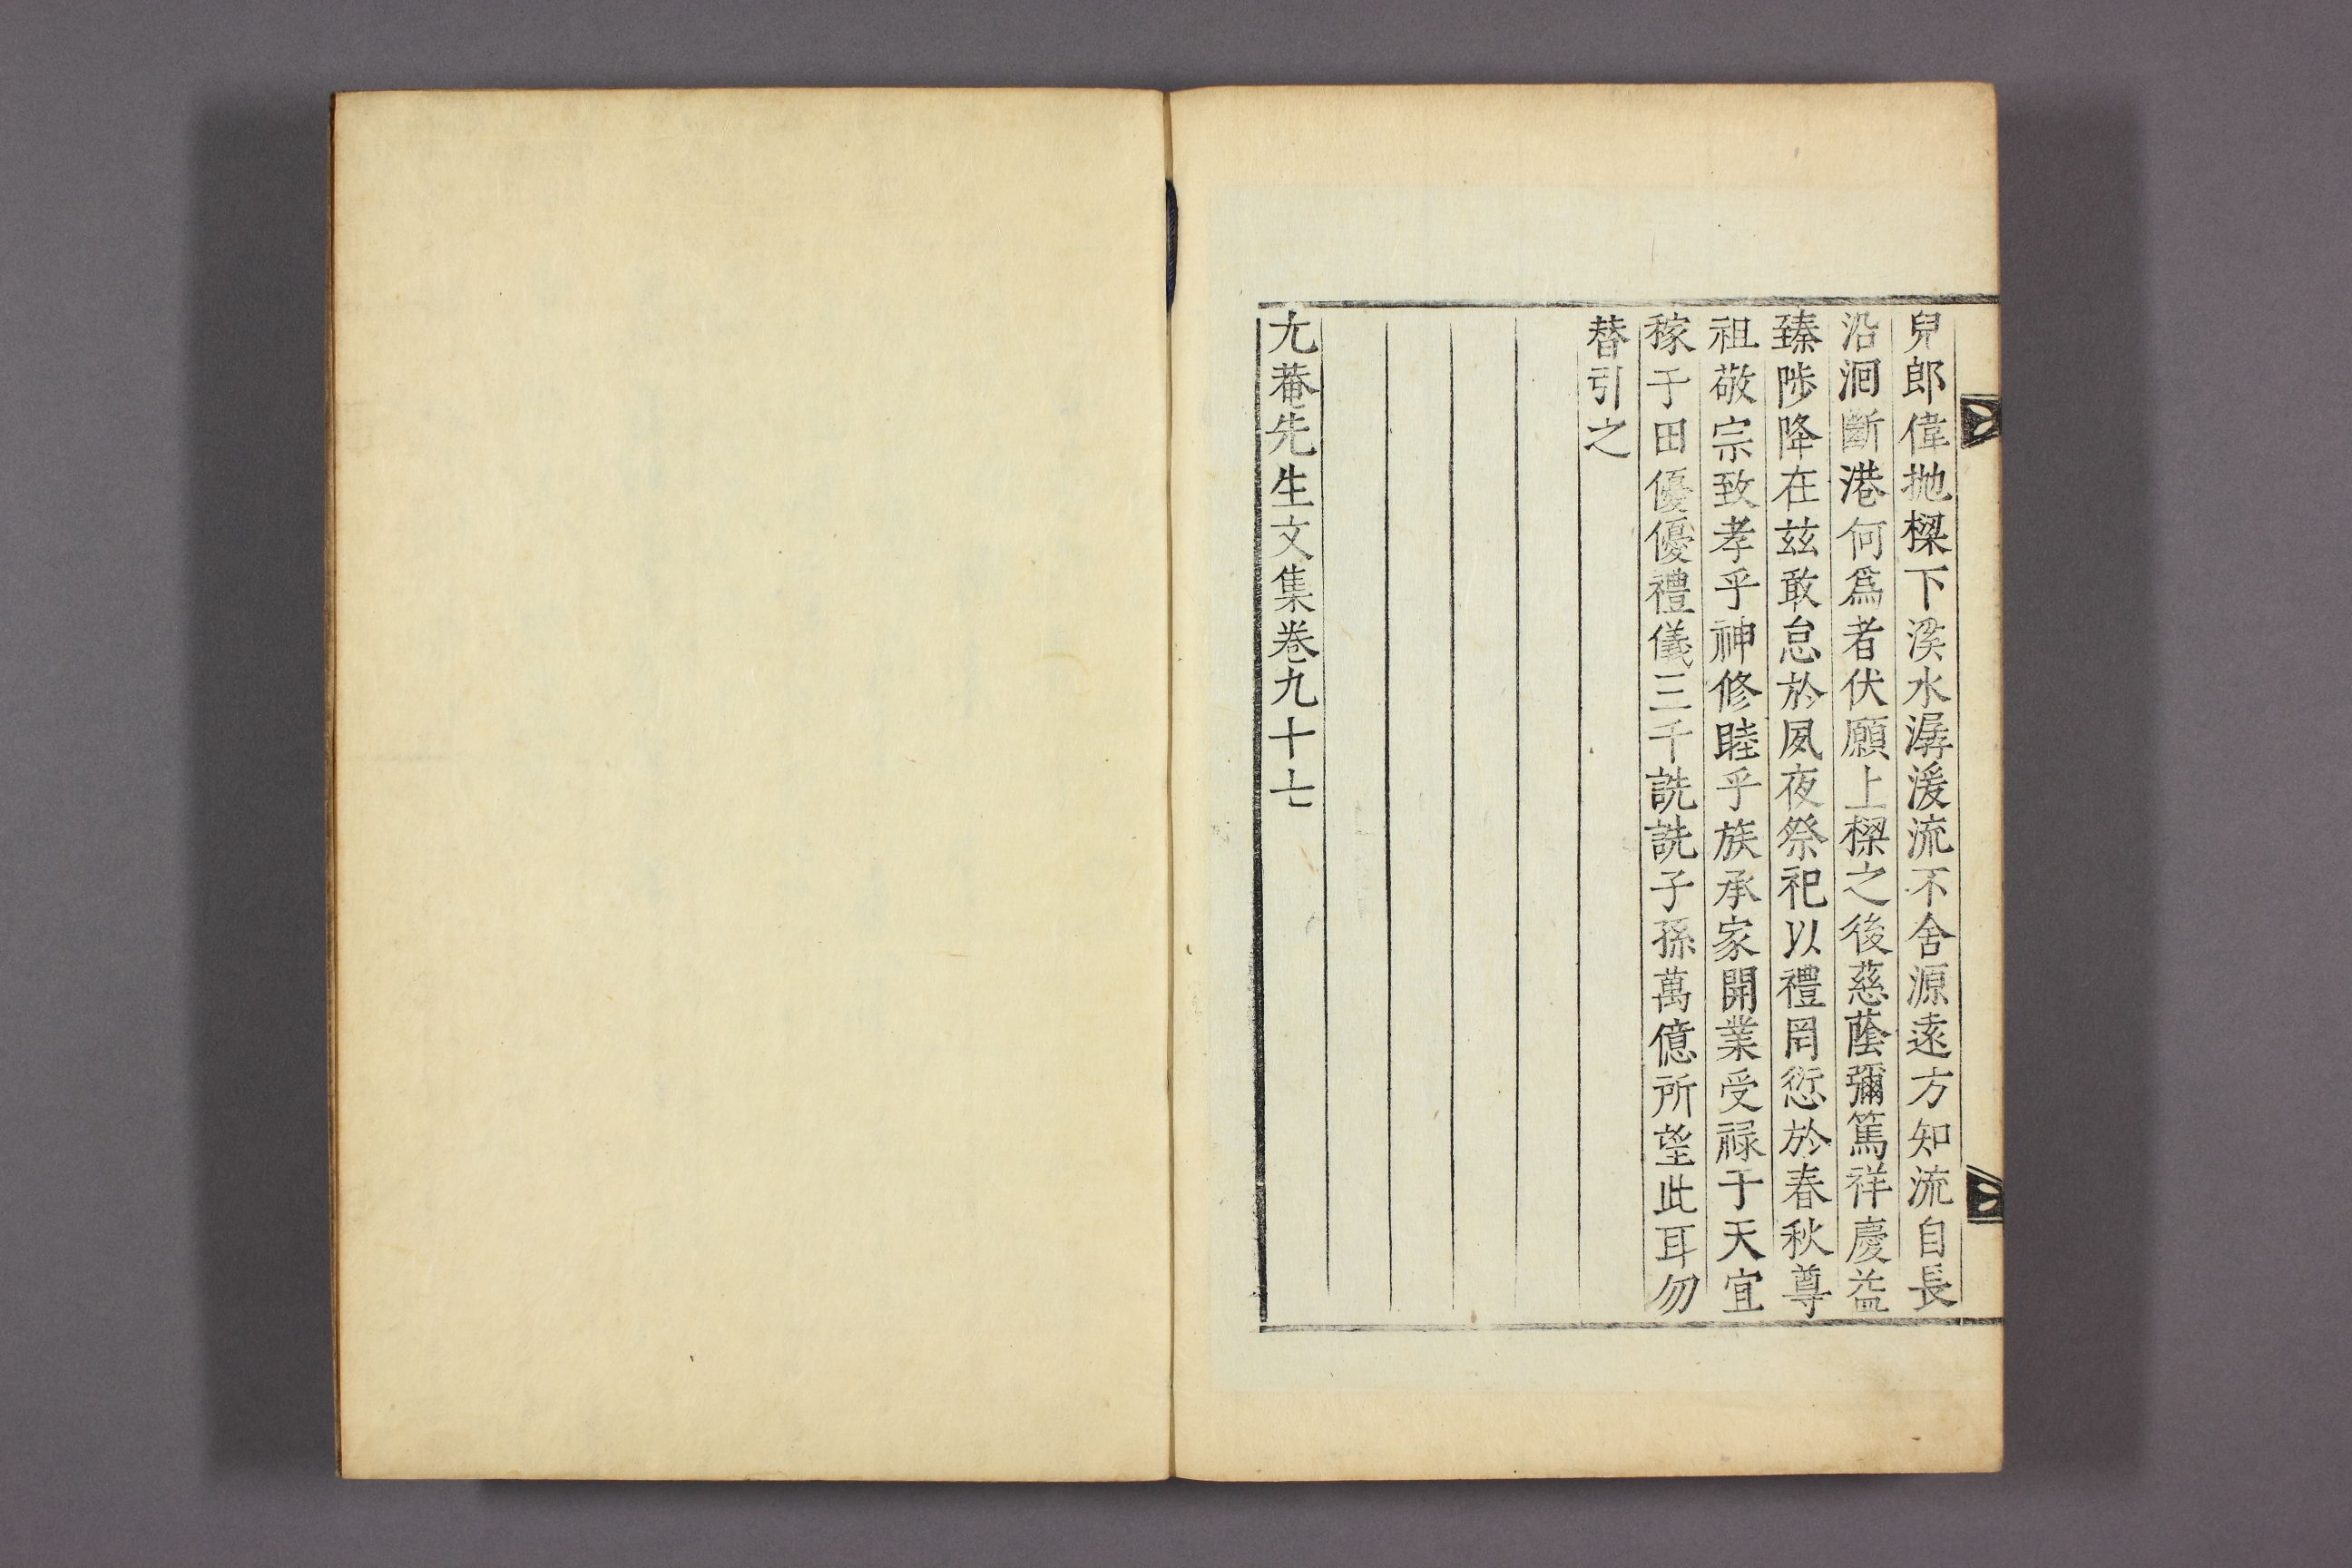 兒郎偉抛樑下溪水潺湲流不舍源遠方知流自長
沿洄斷港何爲者伏願上樑之後慈蔭彌篤祥慶益
臻陟降在玆敢怠於夙夜祭祀以禮罔愆於春秋尊
祖敬宗致孝乎神修睦乎族承家開業受祿于天宜
稼于田優優禮儀三千詵詵子孫萬億所望此耳勿
替引之
尢菴先生文集卷九十七